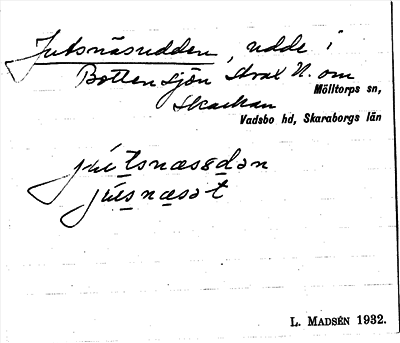 Jutsnäsudden, udde i
Bottensjön strax N. om
Mölltorps sn,
Vadsbo hd, Skaraborgs län
jútsnæsədən
júsnæsət
L. MADSÉN 1932.